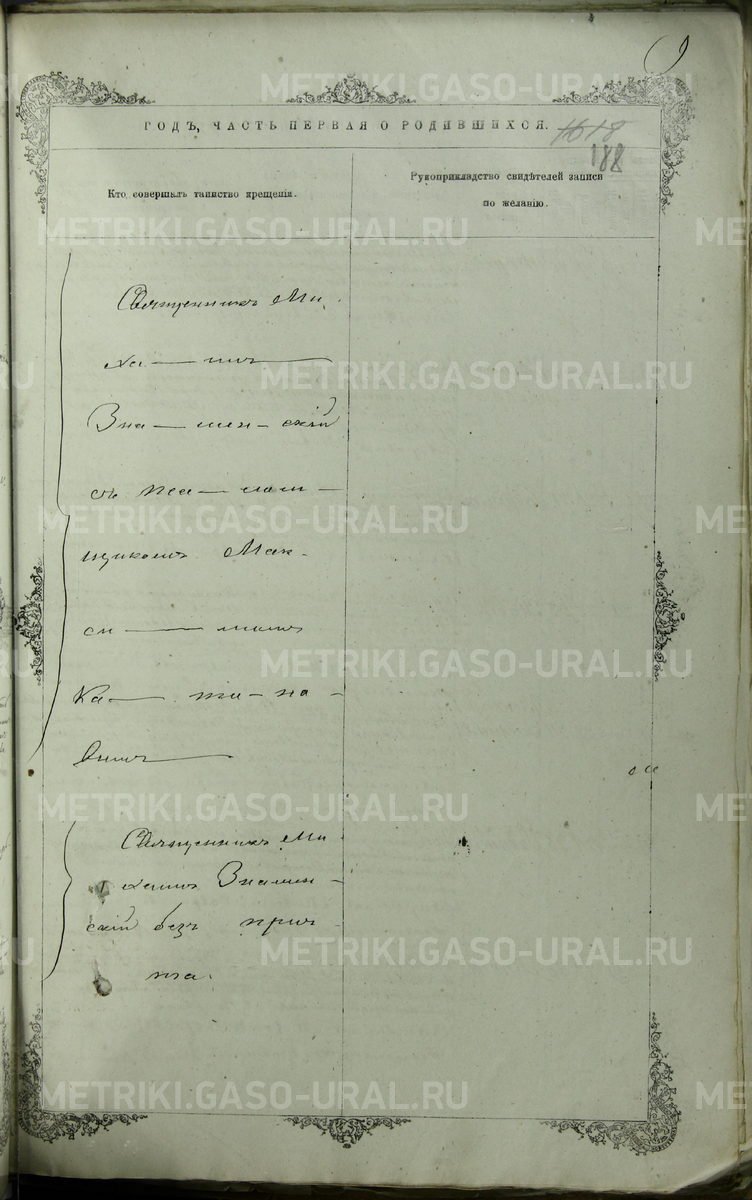 ГОДЪ, ЧАСТЬ ПЕРВАЯ О РОДИВШИХСЯ.
1618
188
Кто совершалъ таинство крещенія.
Рукоприкладство свидѣтелей записи
по желанію.
Священникъ Ми
хаилъ
Знаменскій
съ псалом
щикомъ Мак-
симомъ
Священникъ Ми
хаилъ Знамен-
скій безъ прич
та.
METRIKI.GASO-URAL.RU